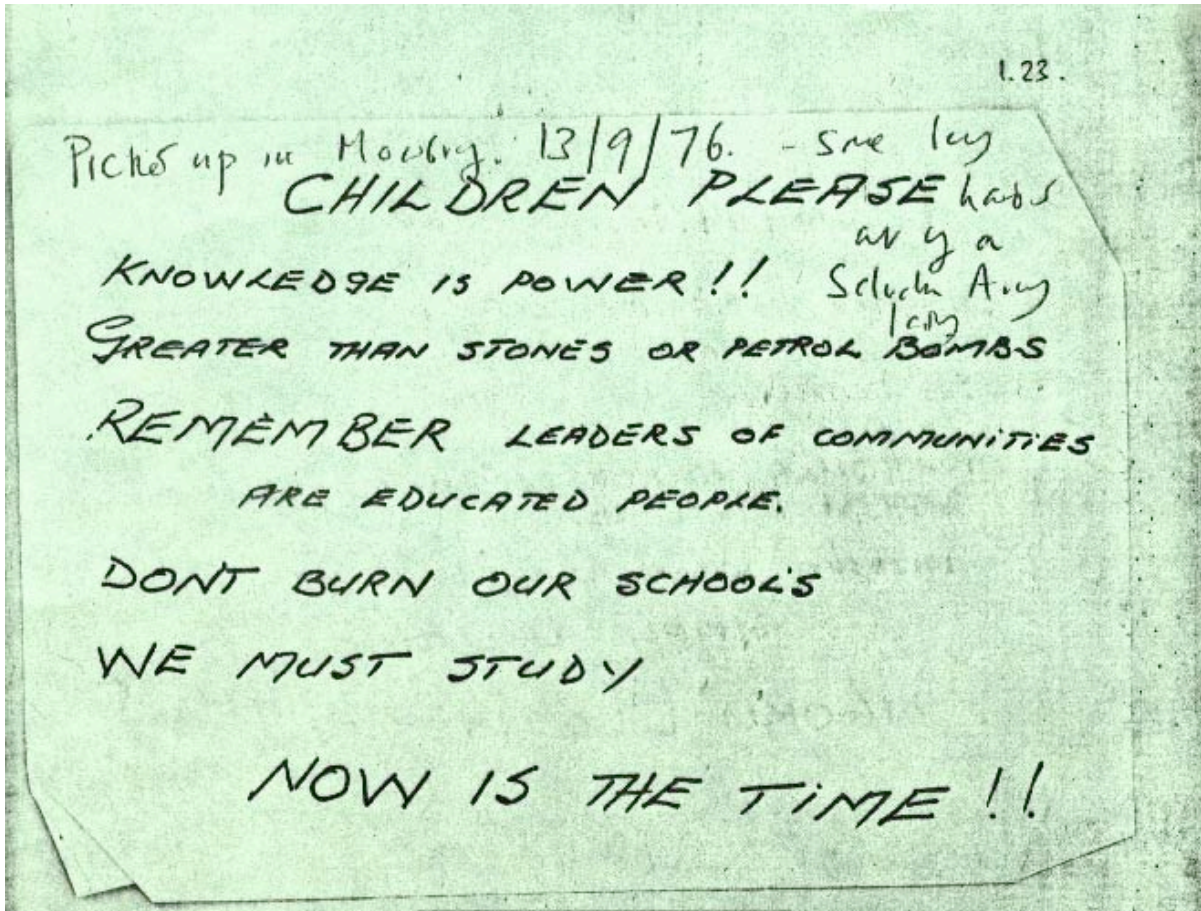 1.23.
Picked up in Mowbray. 13/9/76. - Some
CHILDREN PLEASE
a
KNOWLEDGE IS POWER!!
Army
GREATER THAN STONES OR PETROL BOMBS
REMEMBER LEADERS OF COMMUNITIES
ARE EDUCATED PEOPLE.
DONT BURN OUR SCHOOL'S
WE MUST STUDY
NOW IS THE TIME!!